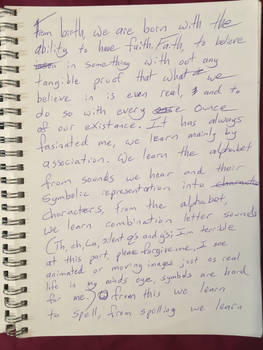 From birth, we are born with the
ability to have faith. Faith, to believe
in something with out any
tangible proof that what we
believe in is even real, and to
do so with every ounce
of our existance. It has always
fasinated me, we learn mainly by
association. We learn the alphabet
from sounds we hear and their
symbolic representation into
characters, from the alphabet,
we learn combination letter sounds
(Th, ch, Ca, silent g's and q's; I'm terrible
at this part, please forgive me, I see
animated or moving images just as real
life in my minds eye, symbols are hard
for me.) From this we learn
to spell, from spelling we learn